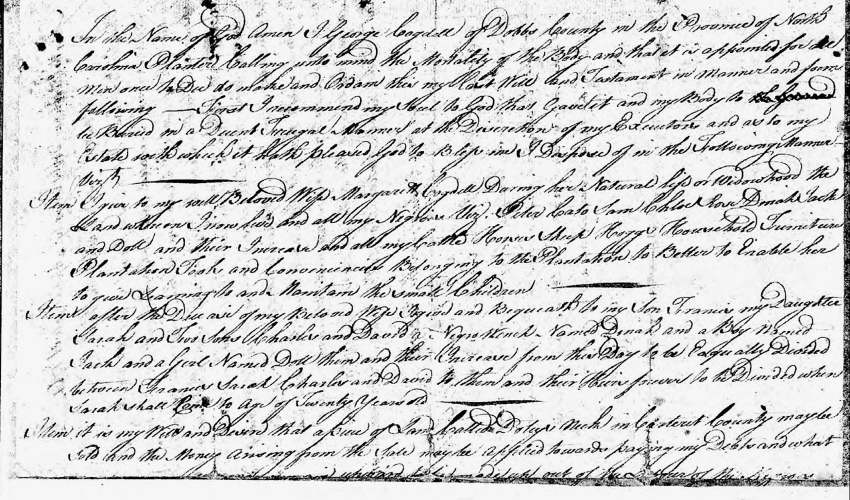 In the Name of God Amen I George Cogdell of Dobbs County in the Province of North
Carolina Planter Calling unto mind the Mortality of the Body and that it is appointed for all
Men once to Die do make and Ordain this my Last Will and Testament in Manner and form
following — First I recommend my Soul to God that Gave it and my Body to
be Buried in a Decent Frugal Manner at the Discretion of my Executors and as to my
Estate with which it Hath pleased God to Bless me I Dispose of in the Following Manner
Vizt.
Item I give to my well Beloved Wife Margaret Cogdell During her Natural life or Widowhood the
Land whereon I now live and all my Negroes Viz. Peter Cato Sam Chloe Rose Dinah Jack
and Doll and their Increase and all my Cattle Horses Sheep Hoggs Household Furniture
Plantation Tools and Conveniences Belonging to the Plantation to Better to Enable her
to give Learning to and Maintain the small Children
Item after the Decease of my Beloved Wife I give and Bequeath to my Son Francis my Daughter
Sarah and Two Sons Charles and David a Negro Wench Named Dinah and a Boy Named
Jack and a Girl Named Doll them and their Increase from this Day to be Equally Divided
between Francis Sarah Charles and David to them and their Heirs forever to be Divided when
Sarah shall to Age of Twenty Years old
Item it is my Will and Desire that a Piece of Land Called Neck in Carteret County may be
Sold and the Money Arising from the Sale may be Applied towards paying my Debts and what
made out of the Labour of the Negroes